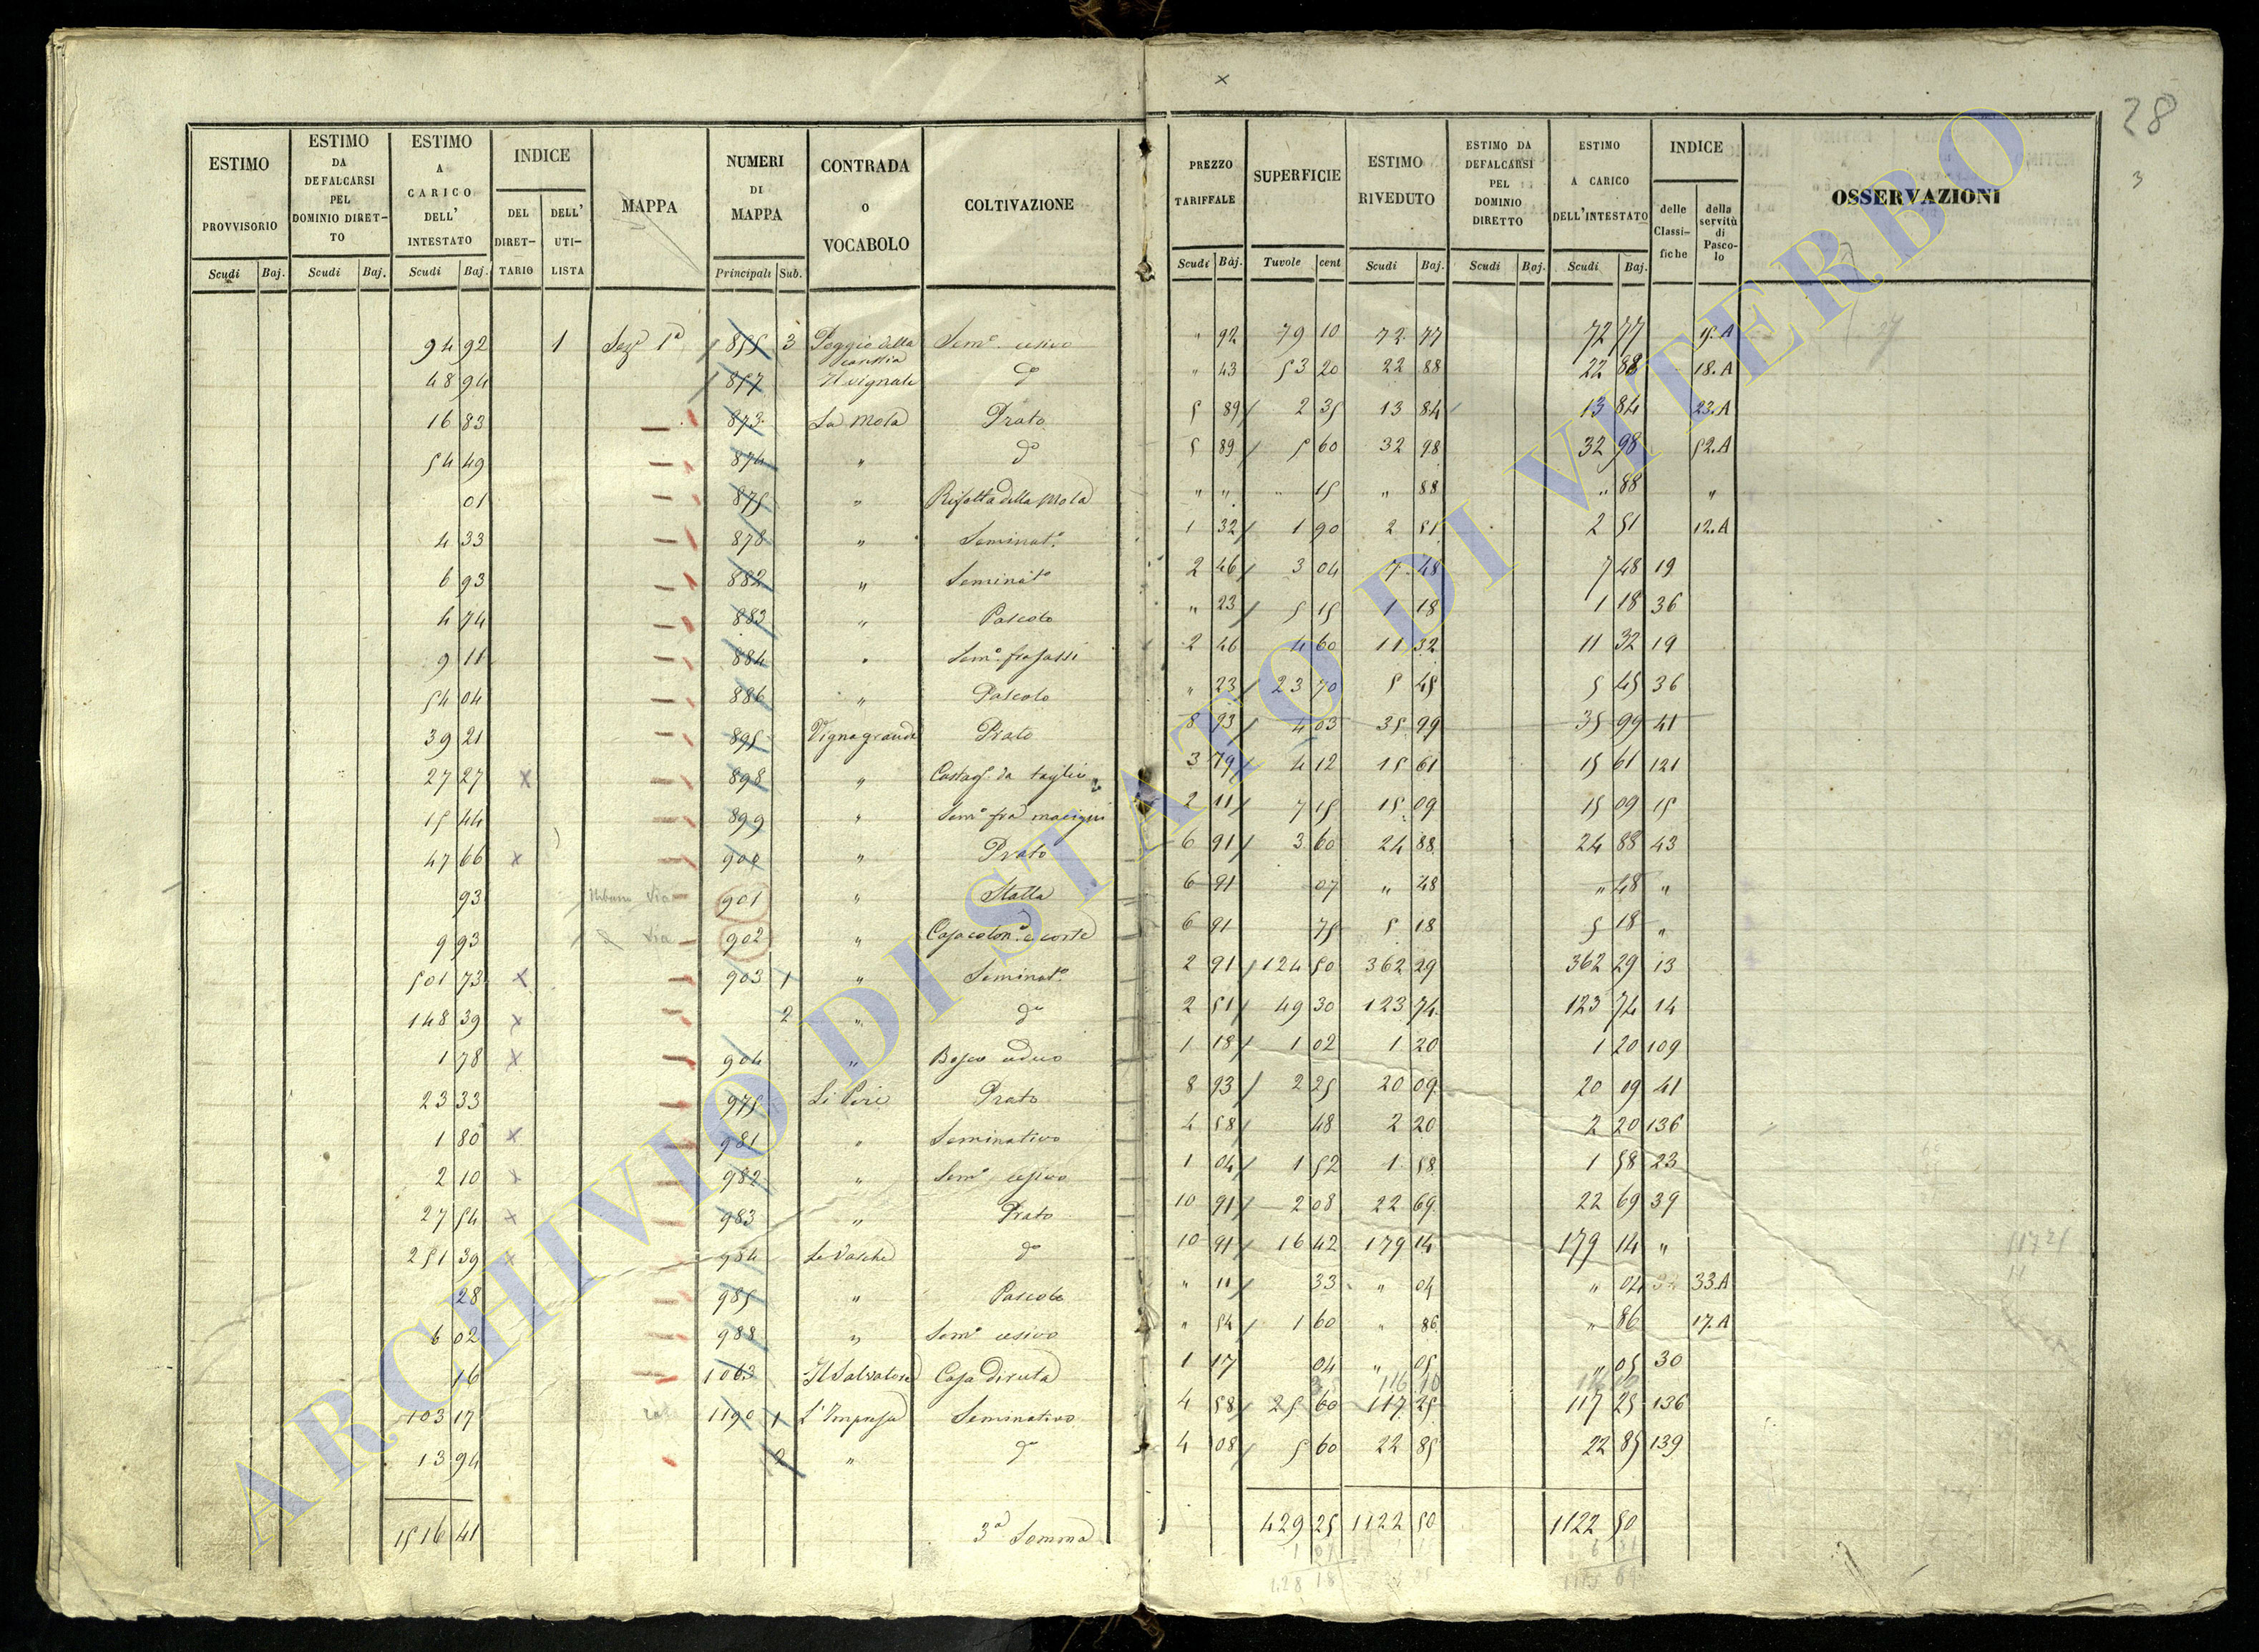 28
3
ESTIMO PROVVISORIO
ESTIMO DA DEFALCARSI PEL DOMINIO DIRET-TO
ESTIMO A CARICO DELL' INTESTATO
INDICE
DEL DIRET-TARIO
DELL' UTI-LISTA
MAPPA
NUMERI DI MAPPA
CONTRADA O VOCABOLO
COLTIVAZIONE
PREZZO TARIFFALE
SUPERFICIE
ESTIMO RIVEDUTO
ESTIMO DA DEFALCARSI PEL DOMINIO DIRETTO
ESTIMO A CARICO DELL'INTESTATO
INDICE
delle Classi-fiche
della servitù di Pasco-lo
OSSERVAZIONI
Scudi Baj. Scudi Baj. Scudi Baj. Principali Sub. Scudi Baj. Tavole cent Scudi Baj. Scudi Baj. Scudi Baj.
94 92 1 Sez.e 1a 855 3 Poggio della Sem.o cesivo " 92 79 10 72 77 72 77 15.A
48 94 857 Il vignale do " 43 53 20 22 88 22 88 18.A
16 83 873 La Mola Prato 5 89 2 35 13 84 13 84 23.A
54 49 874 " do 5 89 5 60 32 98 32 98 52.A
01 875 " Rifolta della Mola " " " 15 " 88 " 88 "
4 33 878 " Seminat.o 1 32 1 90 2 51 2 51 12.A
6 93 882 " Seminat.o 2 46 3 04 7 48 7 48 19
4 74 883 " Pascolo " 23 5 15 1 18 1 18 36
9 11 884 " Sem.o fra sassi 2 46 4 60 11 32 11 32 19
54 04 886 " Pascolo " 23 23 70 5 45 5 45 36
39 21 895 Vignagrande Prato 8 93 4 03 35 99 35 99 41
27 27 x 898 " Castag. da taglio 3 79 4 12 15 61 15 61 121
15 44 899 " Sem.o fra macigni 2 11 7 15 15 09 15 09 15
47 66 x 900 " Prato 6 91 3 60 24 88 24 88 43
93 901 " Stalla 6 91 07 " 48 " 48 "
9 93 902 " Casa colon.a e corte 6 91 75 5 18 5 18 "
501 73 x 903 1 " Seminat.o 2 91 124 50 362 29 362 29 13
148 39 x 2 " do 2 51 49 30 123 74 123 74 14
1 78 x 904 " Bosco ceduo 1 18 1 02 1 20 1 20 109
23 33 975 Li Piri Prato 8 93 2 25 20 09 20 09 41
1 80 x 981 " Seminativo 4 58 48 2 20 2 20 136
2 10 x 982 " Sem.o cesivo 1 04 1 52 1 58 1 58 23
27 54 x 983 " Prato 10 91 2 08 22 69 22 69 39
251 39 x 984 Le Vasche do 10 91 16 42 179 14 179 14 "
28 985 " Pascolo " 11 33 " 04 " 04 33.A
6 02 988 " Sem.o cesivo " 54 1 60 " 86 " 86 17.A
16 1063 Il Salvatore Casa diruta 1 17 04 " 05 " 05 30
103 17 1190 1 L'Impresa Seminativo 4 58 25 60 117 25 117 25 136
13 94 2 " do 4 08 5 60 22 85 22 85 139
1516 41 3a Somma 429 25 1122 50 1122 50
ARCHIVIO DI STATO DI VITERBO